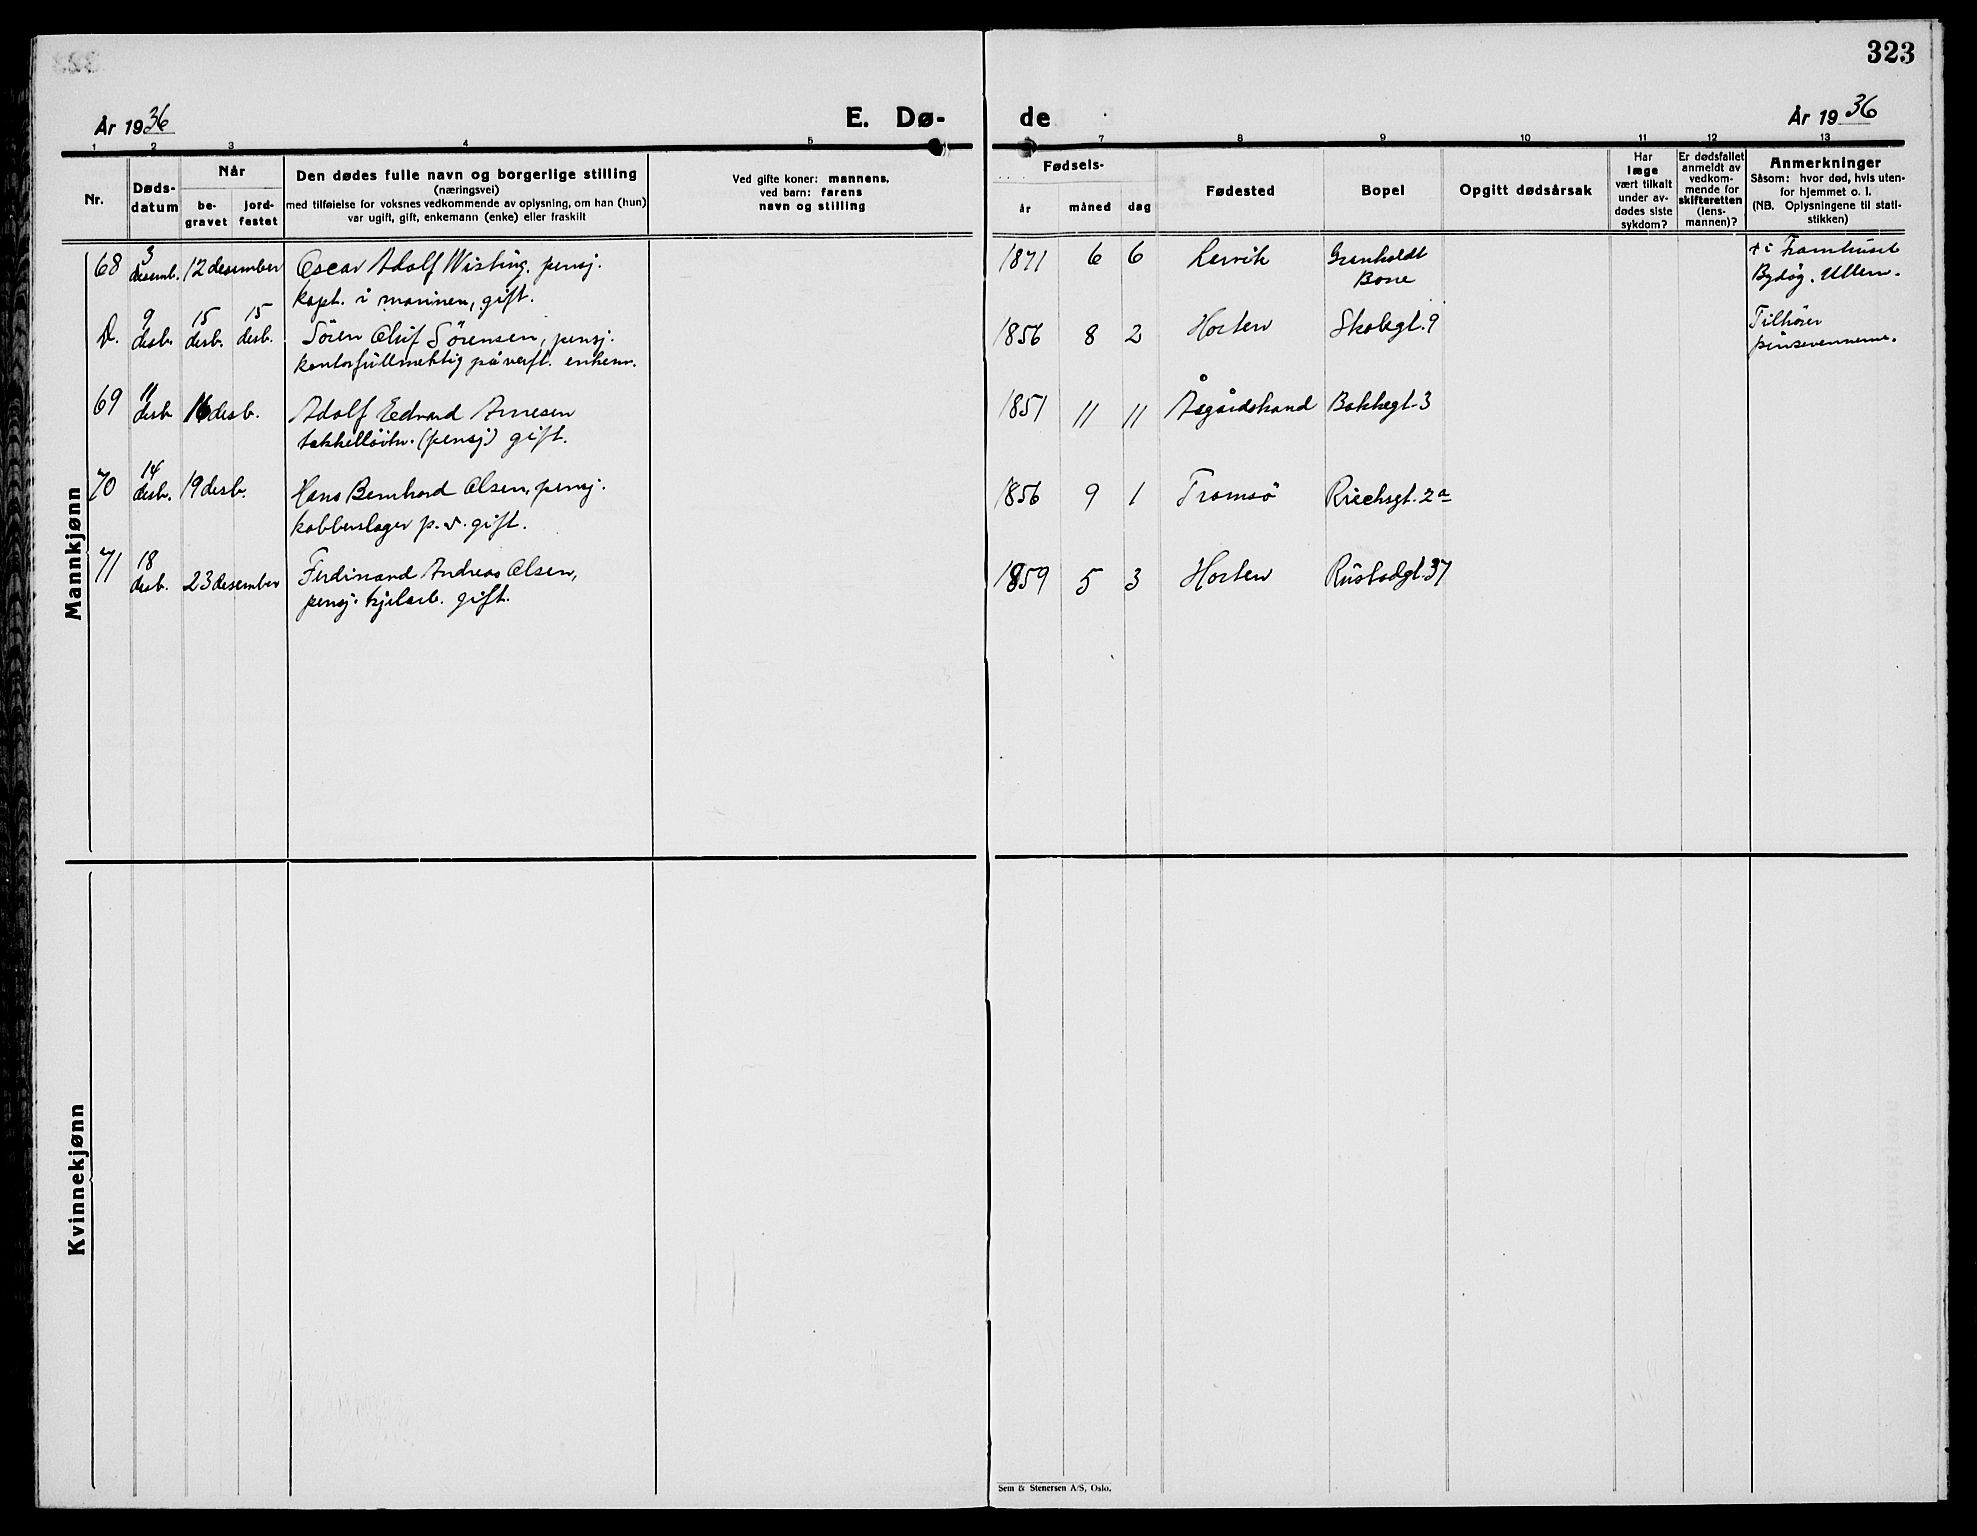 323
År 1936
E. Dø-
de
År 1936
1 2 3 4 5 7 8 9 10 11 12 13
Nr.
Døds-
datum
Når
be-
gravet
jord-
festet
Den dødes fulle navn og borgerlige stilling
(næringsvei)
med tilføielse for voksnes vedkommende av oplysning, om han (hun)
var ugift, gift, enkemann (enke) eller fraskilt
Ved gifte koner: mannens,
ved barn: farens
navn og stilling
Fødsels-
år måned dag
Fødested
Bopel
Opgitt dødsårsak
Har
læge
vært tilkalt
under av-
dødes siste
sykdom?
Er dødsfallet
anmeldt av
vedkom-
mende for
skifteretten
(lens-
mannen)?
Anmerkninger
Såsom: hvor død, hvis uten-
for hjemmet o. l.
(NB. Oplysningene til stati-
stikken)
Mannkjønn
68 3 desemb. 12 desember Oscar Adolf Wisting, pensj.
kapt. i marinen, gift.
1871 6 6 Larvik
Bone
† i Framhuset
Bygdøy, Ullern.
D. 9 desb. 15 desb. 15 desb. Sören Oluf Sörensen, pensj.
kontorfullmektig på verft. enkem.
1856 8 2 Horten Skolegt. 9
Tilhører
pinsevennerne.
69 11 desb. 16 desb. Adolf Edvard Arnesen
takkelløitn. (pensj.) gift.
1851 11 11 Åsgårdstrand Bakkegt. 3
70 14 desb. 19 desb. Hans Bernhard Olsen, pensj.
kobberslager p. v. gift.
1856 9 1 Tromsö 2a
71 18 desb. 23 desember Ferdinand Andreas Olsen,
pensj. kjelarb. gift.
1859 5 3 Horten Rustadgt. 37
Kvinnekjønn
Sem & Stenersen A/S, Oslo.